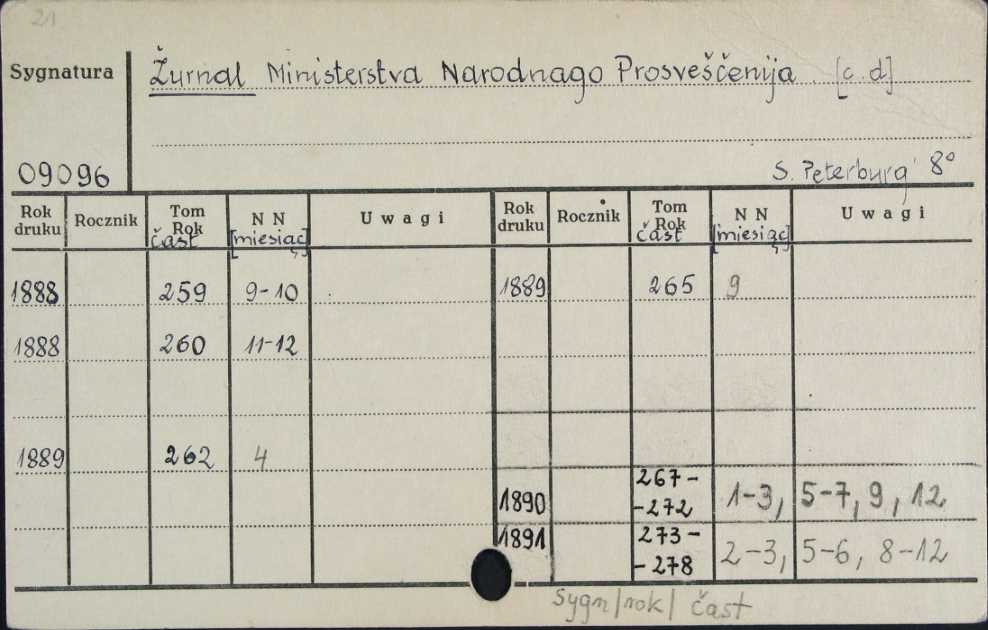 21
Sygnatura
Žurnal Ministerstva Narodnago Prosveščenija [c.d]
09096
S. Peterburg 8°
Rok druku Rocznik Tom Rok část N N [miesiąc] Uwagi Rok druku Rocznik Tom Rok část N N [miesiąc] Uwagi
1888 259 9-10 1889 265 9
1888 260 11-12
1889 262 4
1890 267-
-272 1-3, 5-7, 9, 12
1891 273-
-278 2-3, 5-6, 8-12
Sygn/rok/ část